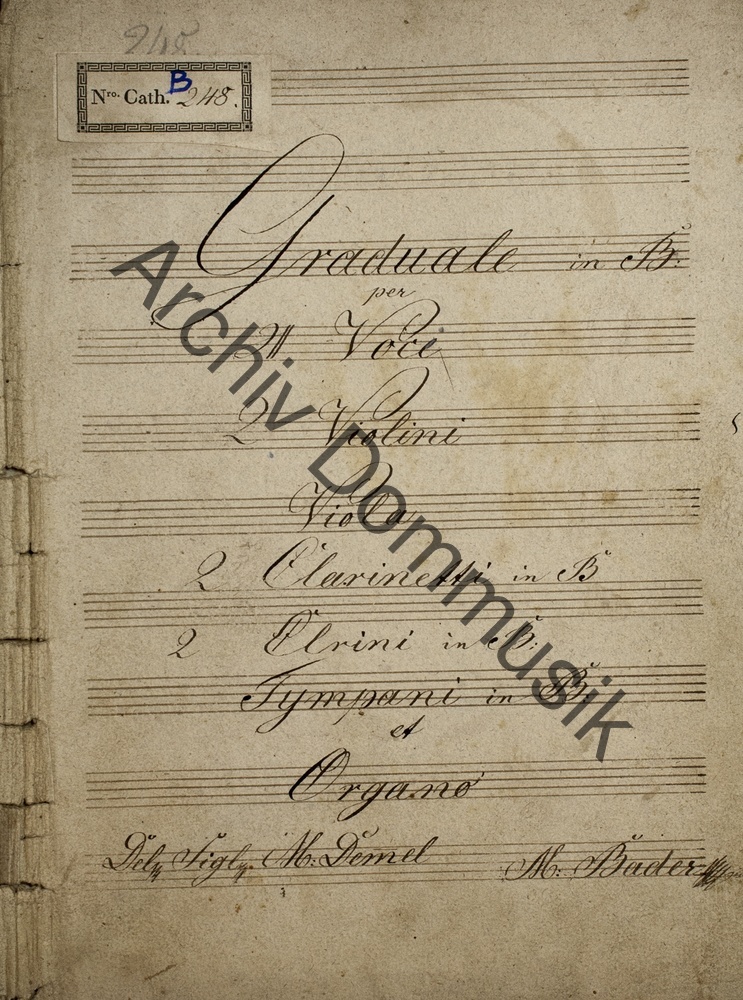 248
Nro. Cath. B 248.
Graduale in B.
per
Voci
2 Violini
Viola
2 Clarinetti in B
2 Clrini in B:
Tympani in B:
et
Organo
M: Demel M: Bader
Archiv Dommusik